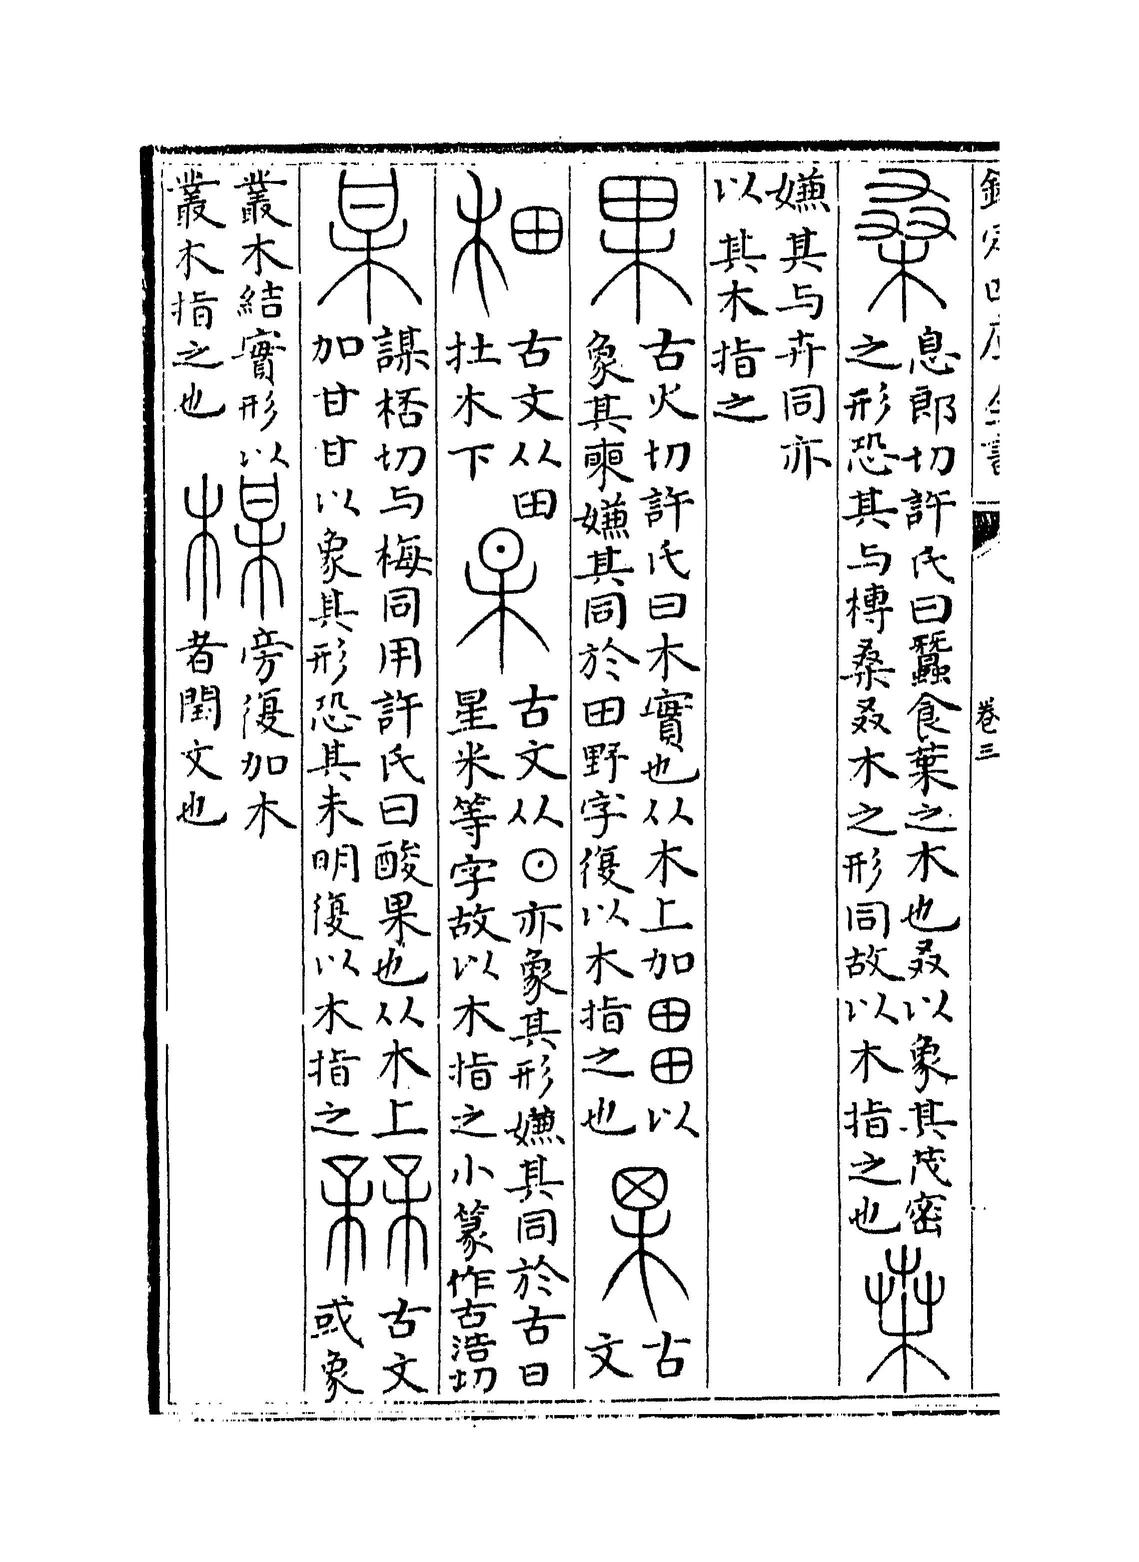 欽定四庫全書
卷三
桑
息郎切許氏曰蠶食葉之木也叒以象其茂密
之形恐其与榑桑叒木之形同故以木指之也
嫌其与卉同亦
以其木指之
果
古火切許氏曰木實也从木上加田田以
象其嫌其同於田野字復以木指之也
古
文
古文从田
木下
古文从⊙亦象其形嫌其同於古日
星米等字故以木指之小篆作古浩切
某
謀桮切与梅同用許氏曰酸果也从木上
加甘甘以象其形恐其未明復以木指之
古文
或象
叢木結實形以
叢木指之也
旁復加木
者閏文也